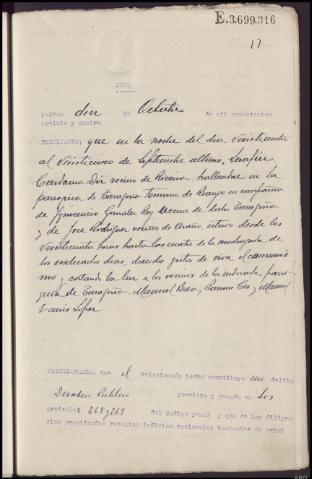 E.3.699.316
17
AUTO
Padron diez de Octubre de mil novecientos
treinta y cuatro
RESULTANDO: que en la noche del dia veinticuatro
al veinticinco de Septiembre ultimo, Serafin
Cardama Diz vecino de Rianjo hallandose en la
parroquia de Taragoña termino de Rianjo en compañia
de Gumersindo Gonzalez Rey vecino de dicha Taragoña
y de Jose Rodriguez vecino de Araño, estuvo desde las
veinticuatro horas hasta las cuatro de la madrugada de
los indicados dias, dando gritos de viva el comunis
mo y cortando la luz a los vecinos de la indicada parro-
quia de Taragoña Manuel Ramon y Manuel
CONSIDERANDO: que el relacionado hecho constituye un delito
previsto y penado en los
articulos 268 y 269 del Codigo Penal y que de las diligen
cias practicadas resultan indicios racionales bastantes de crimi